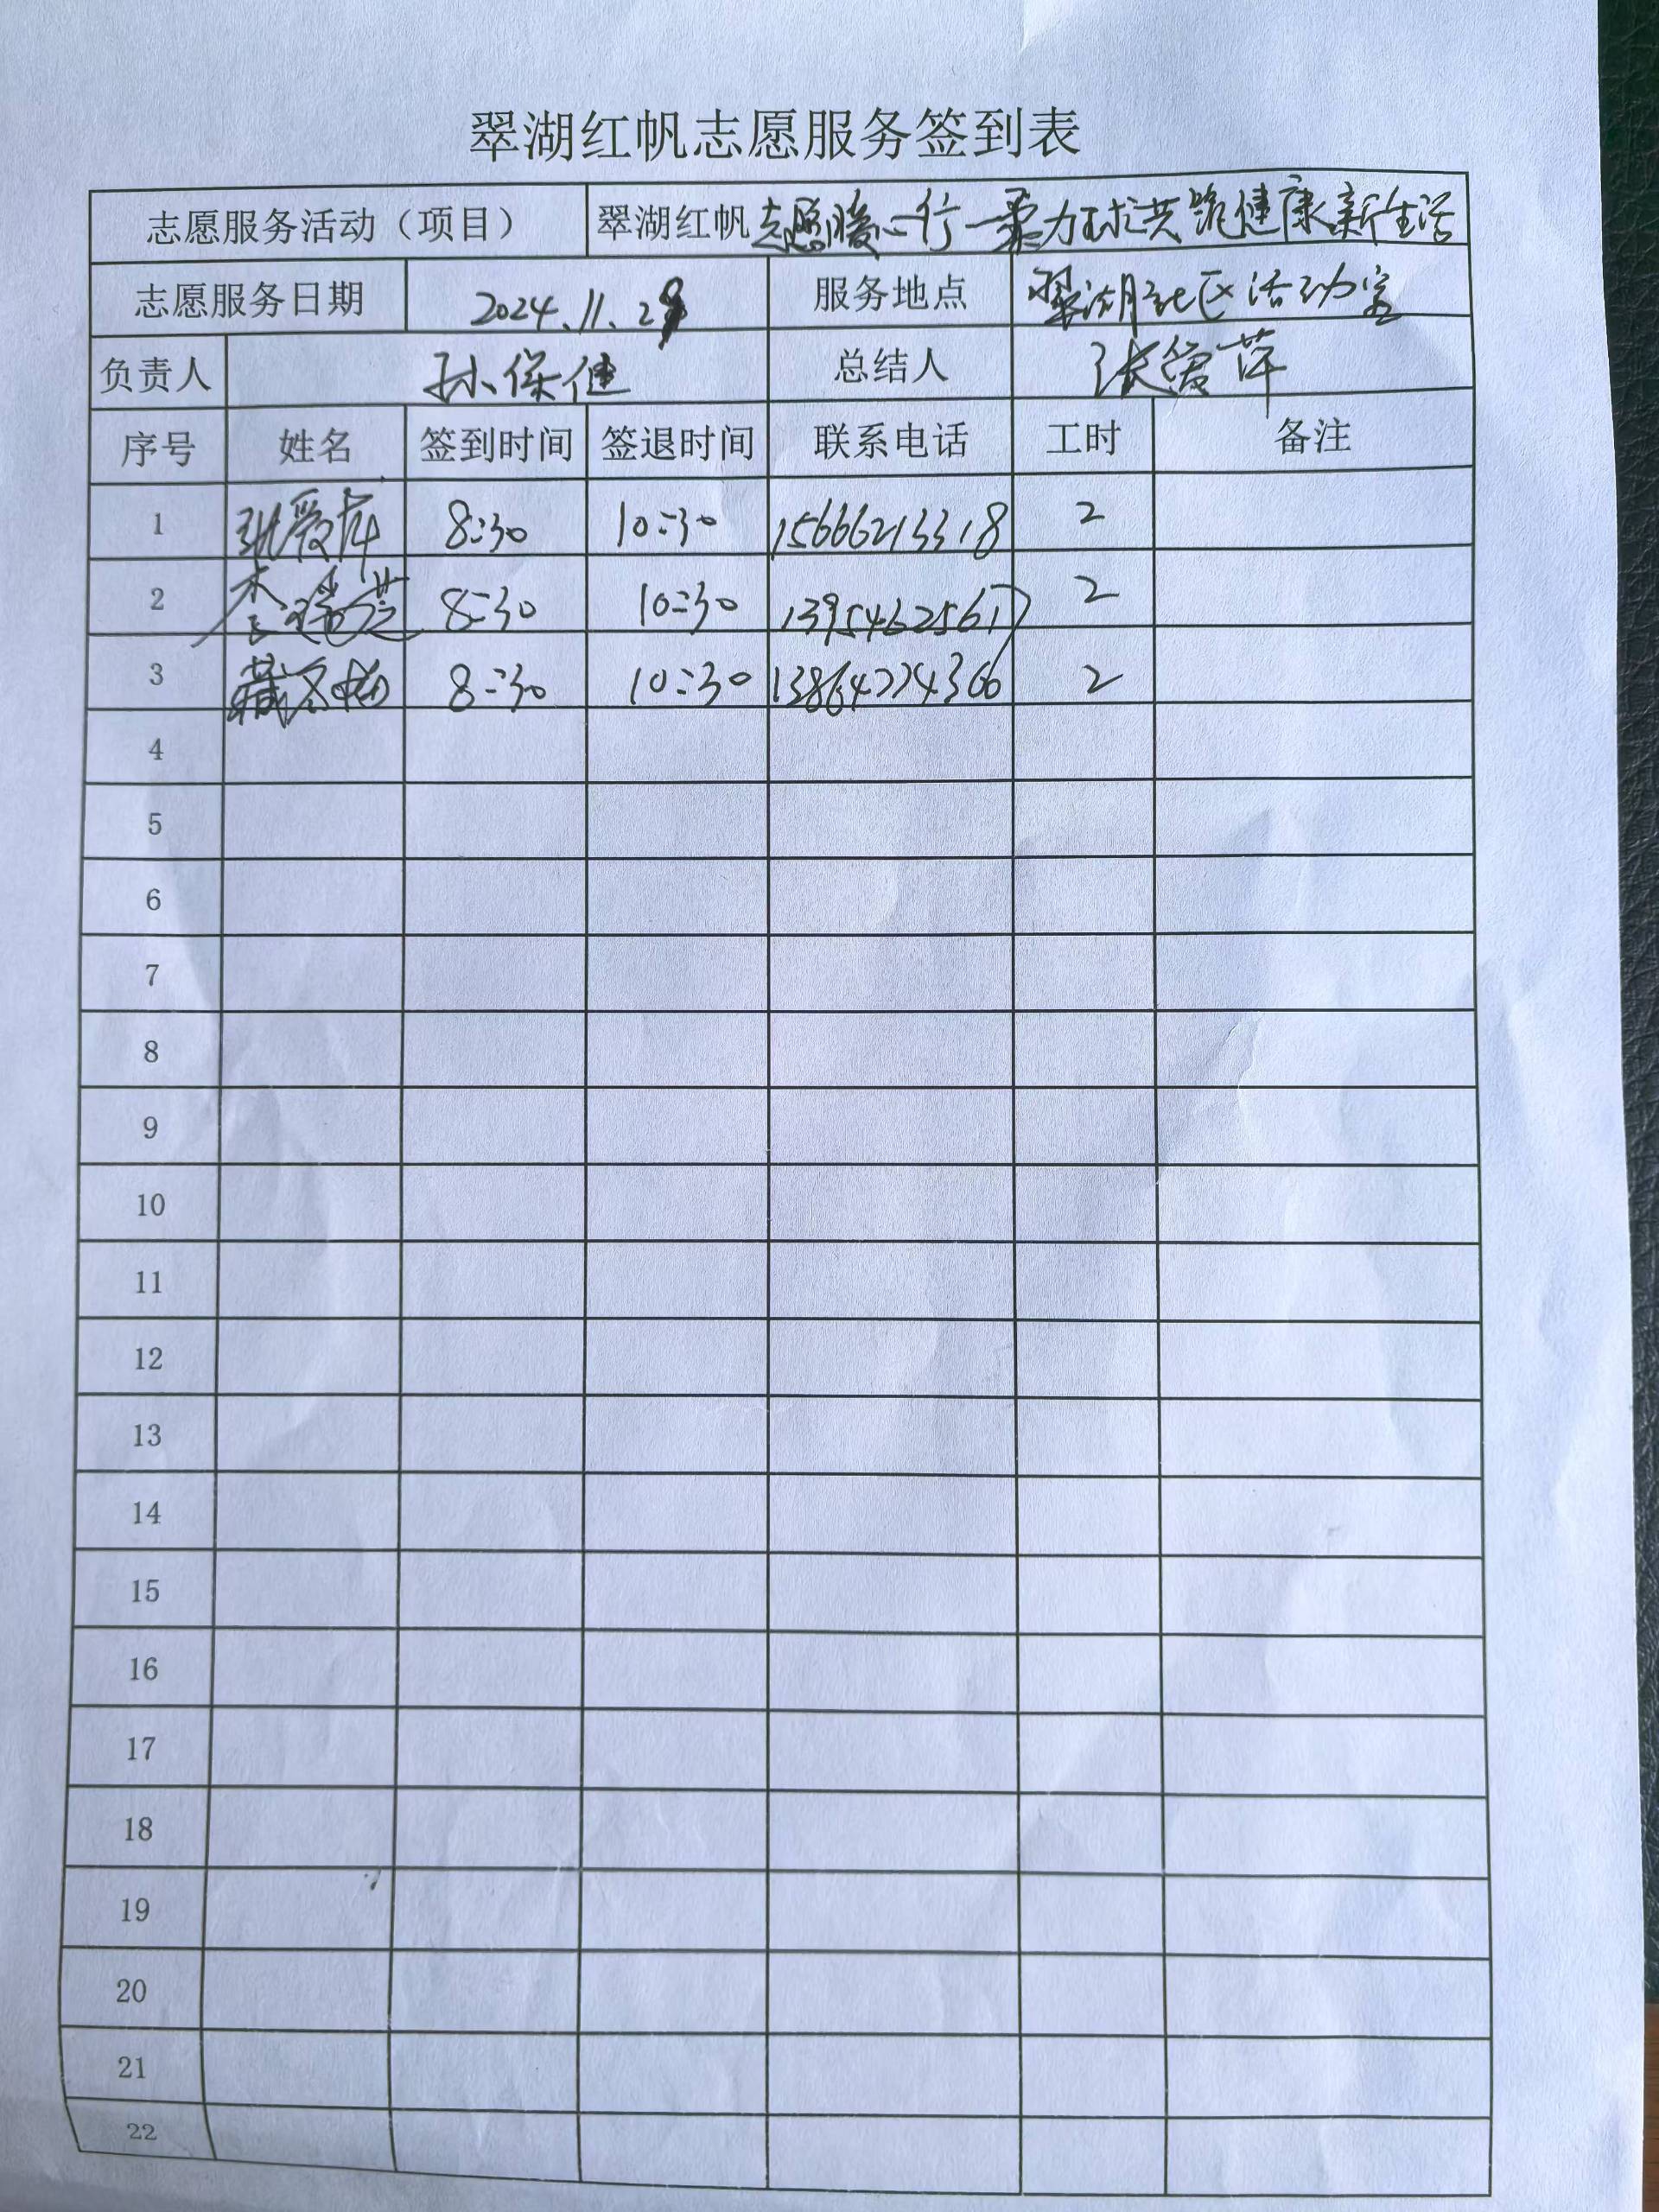 翠湖红帆志愿服务签到表
志愿服务活动（项目） 翠湖红帆志愿暖心行一柔力球共筑健康新生活
志愿服务日期 2024.11.29 服务地点 翠湖社区活动室
负责人 孙保健 总结人 张爱萍
序号 姓名 签到时间 签退时间 联系电话 工时 备注
1 张爱萍 8:30 10:30 15666213318 2
2 李瑞芝 8:30 10:30 13954625617 2
3 8:30 10:30 13864774366 2
4
5
6
7
8
9
10
11
12
13
14
15
16
17
18
19
20
21
22